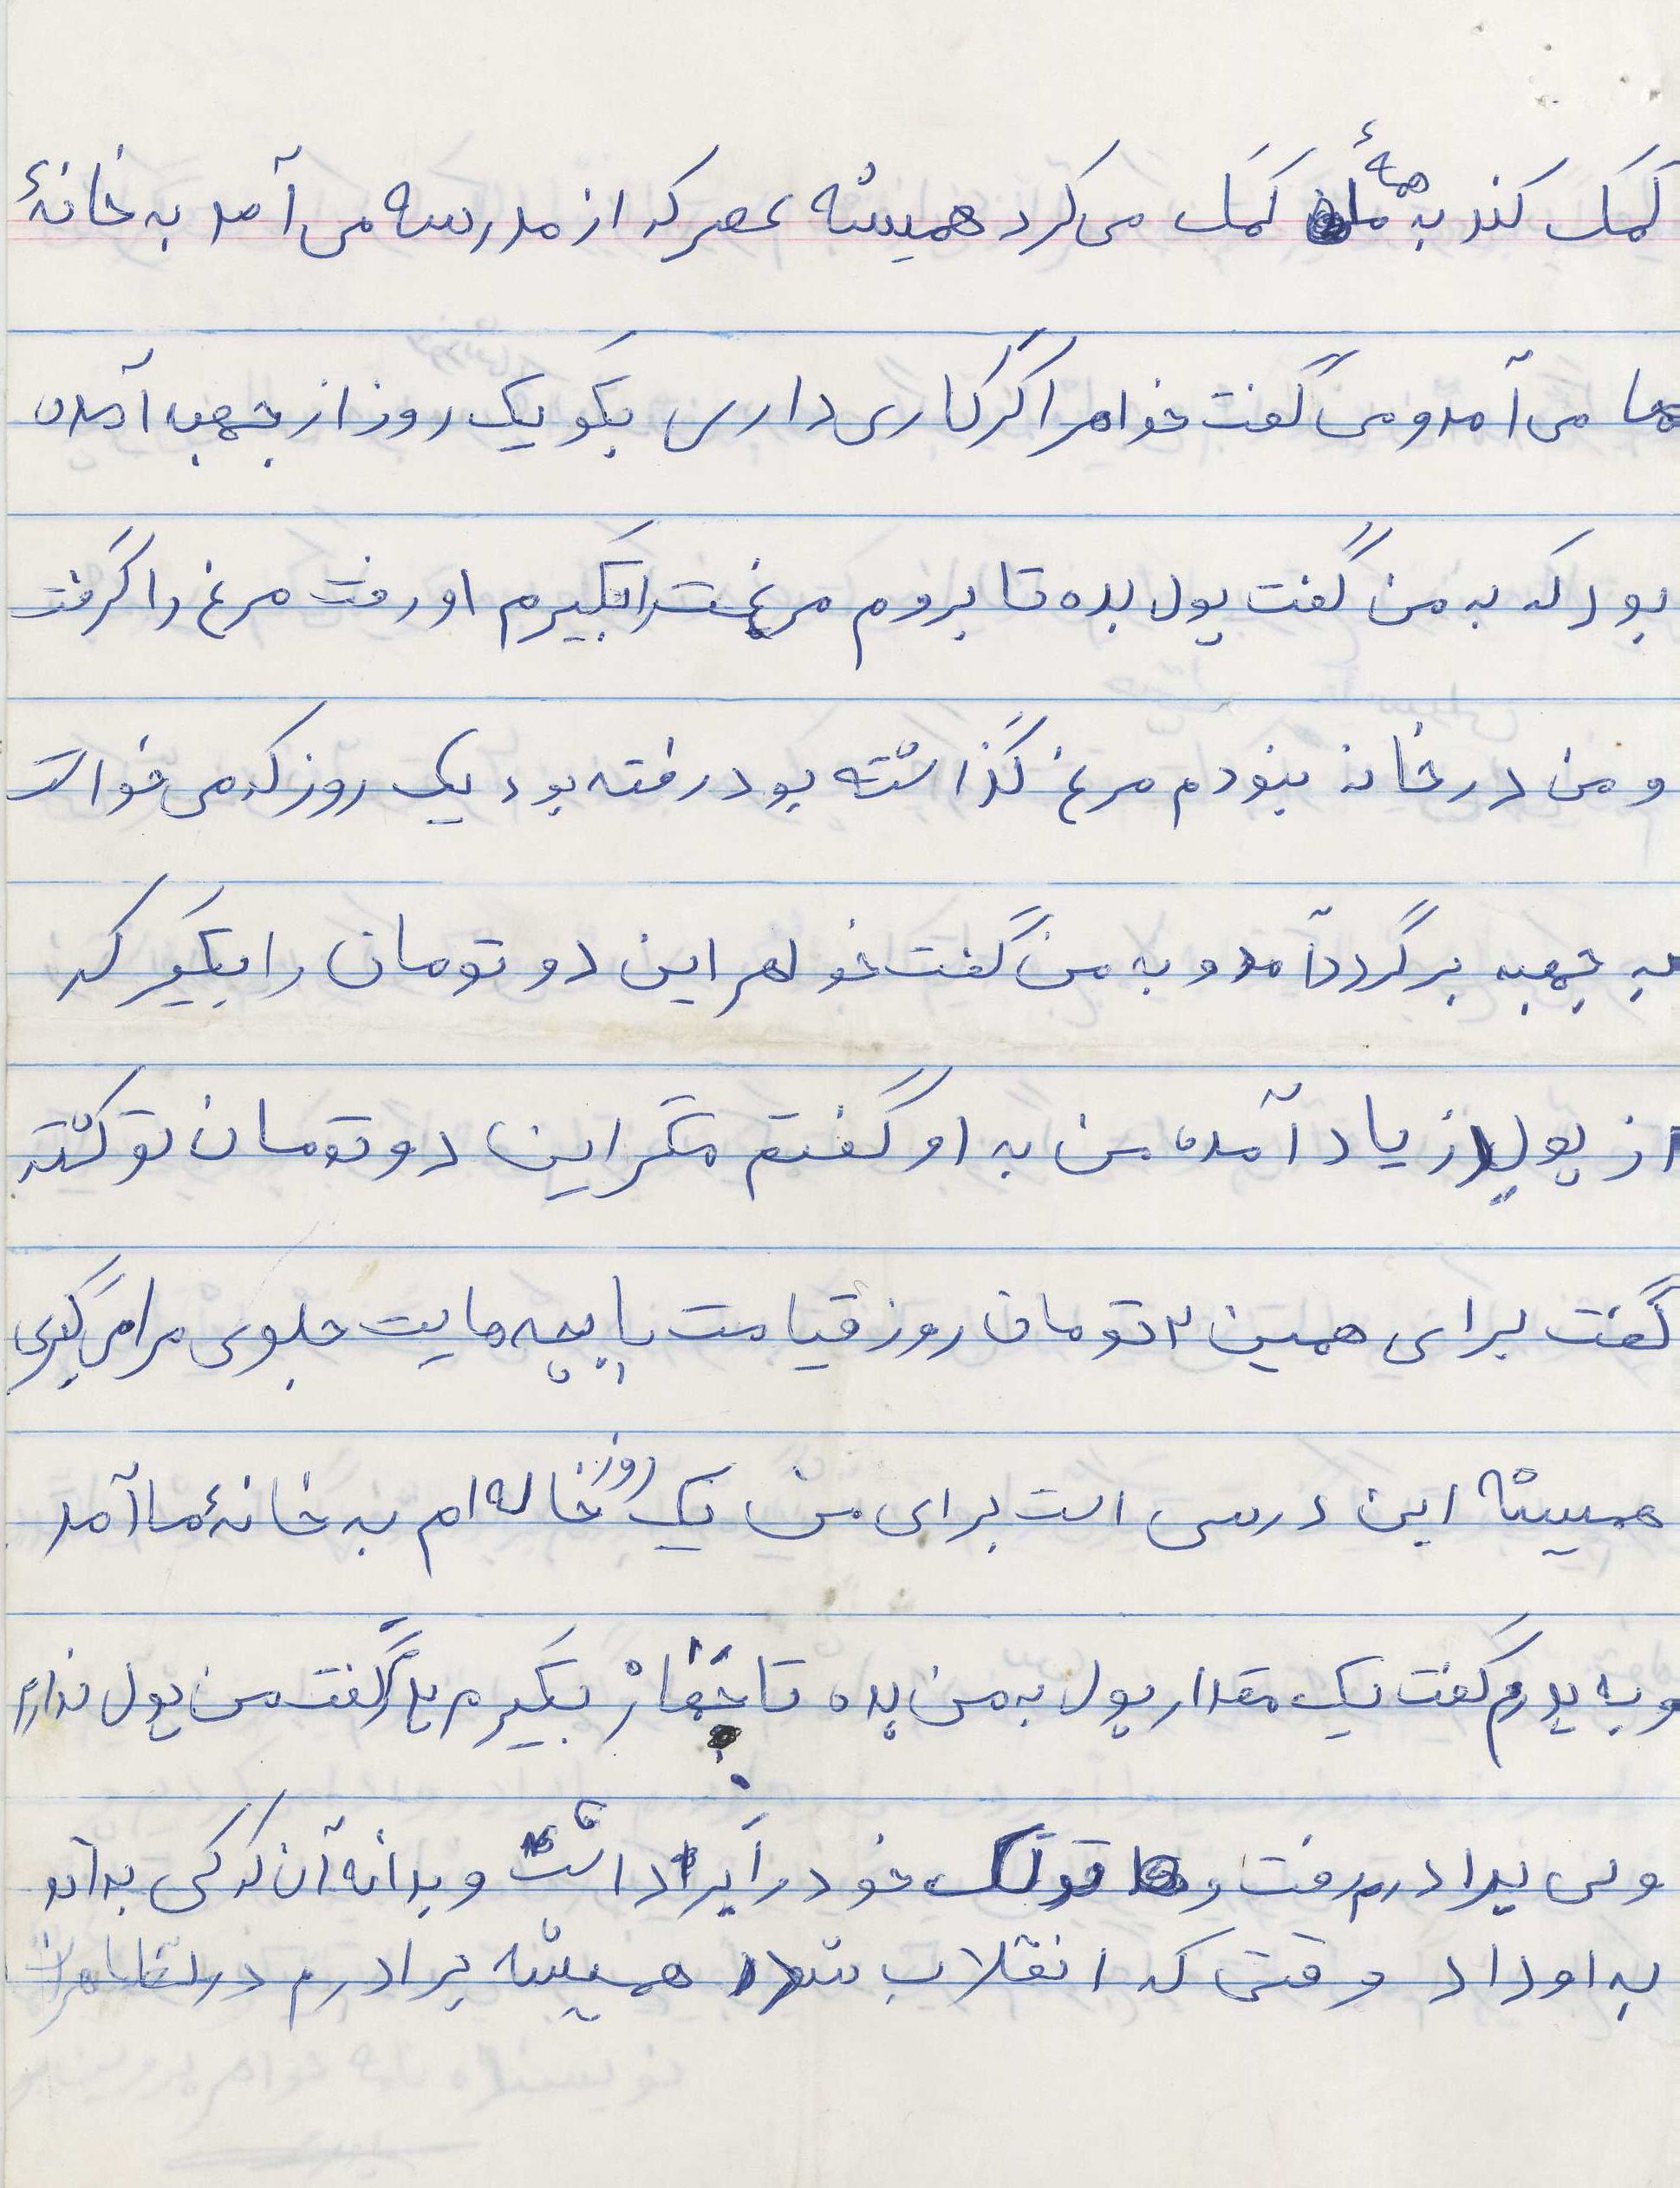 کمک کند به همهٔ ما کمک می‌کرد همیشه عصر که از مدرسه می‌آمد به خانهٔ
ما می‌آمد و می‌گفت خواهر اگر کاری داری بگو یک روز از جبهه آمده
بود که به من گفت پول بده تا بروم مرغت را بگیرم او رفت مرغ را گرفت
و من در خانه نبودم مرغ گذاشته بود رفته بود یک روز که می‌خواست
به جبهه برگردد آمد و به من گفت خواهر این دو تومان را بگیر که
از پول زیاد آمده من به او گفتم مگر این دو تومان تو کشته
گفت برای همین ۲ تومان روز قیامت با بچه‌هایت جلوی مرا می‌گیری
همیشه این درسی است برای من یک روز خاله‌ام به خانهٔ ما آمد
و به پدرم گفت یک مقدار پول به من بده تا بگیرم پدر گفت من پول ندارم
ولی برادرم رفت و خود را برداشت و بدانه آن که کسی بداند
به او داد وقتی که انقلاب شد همیشه برادرم در تظاهرات